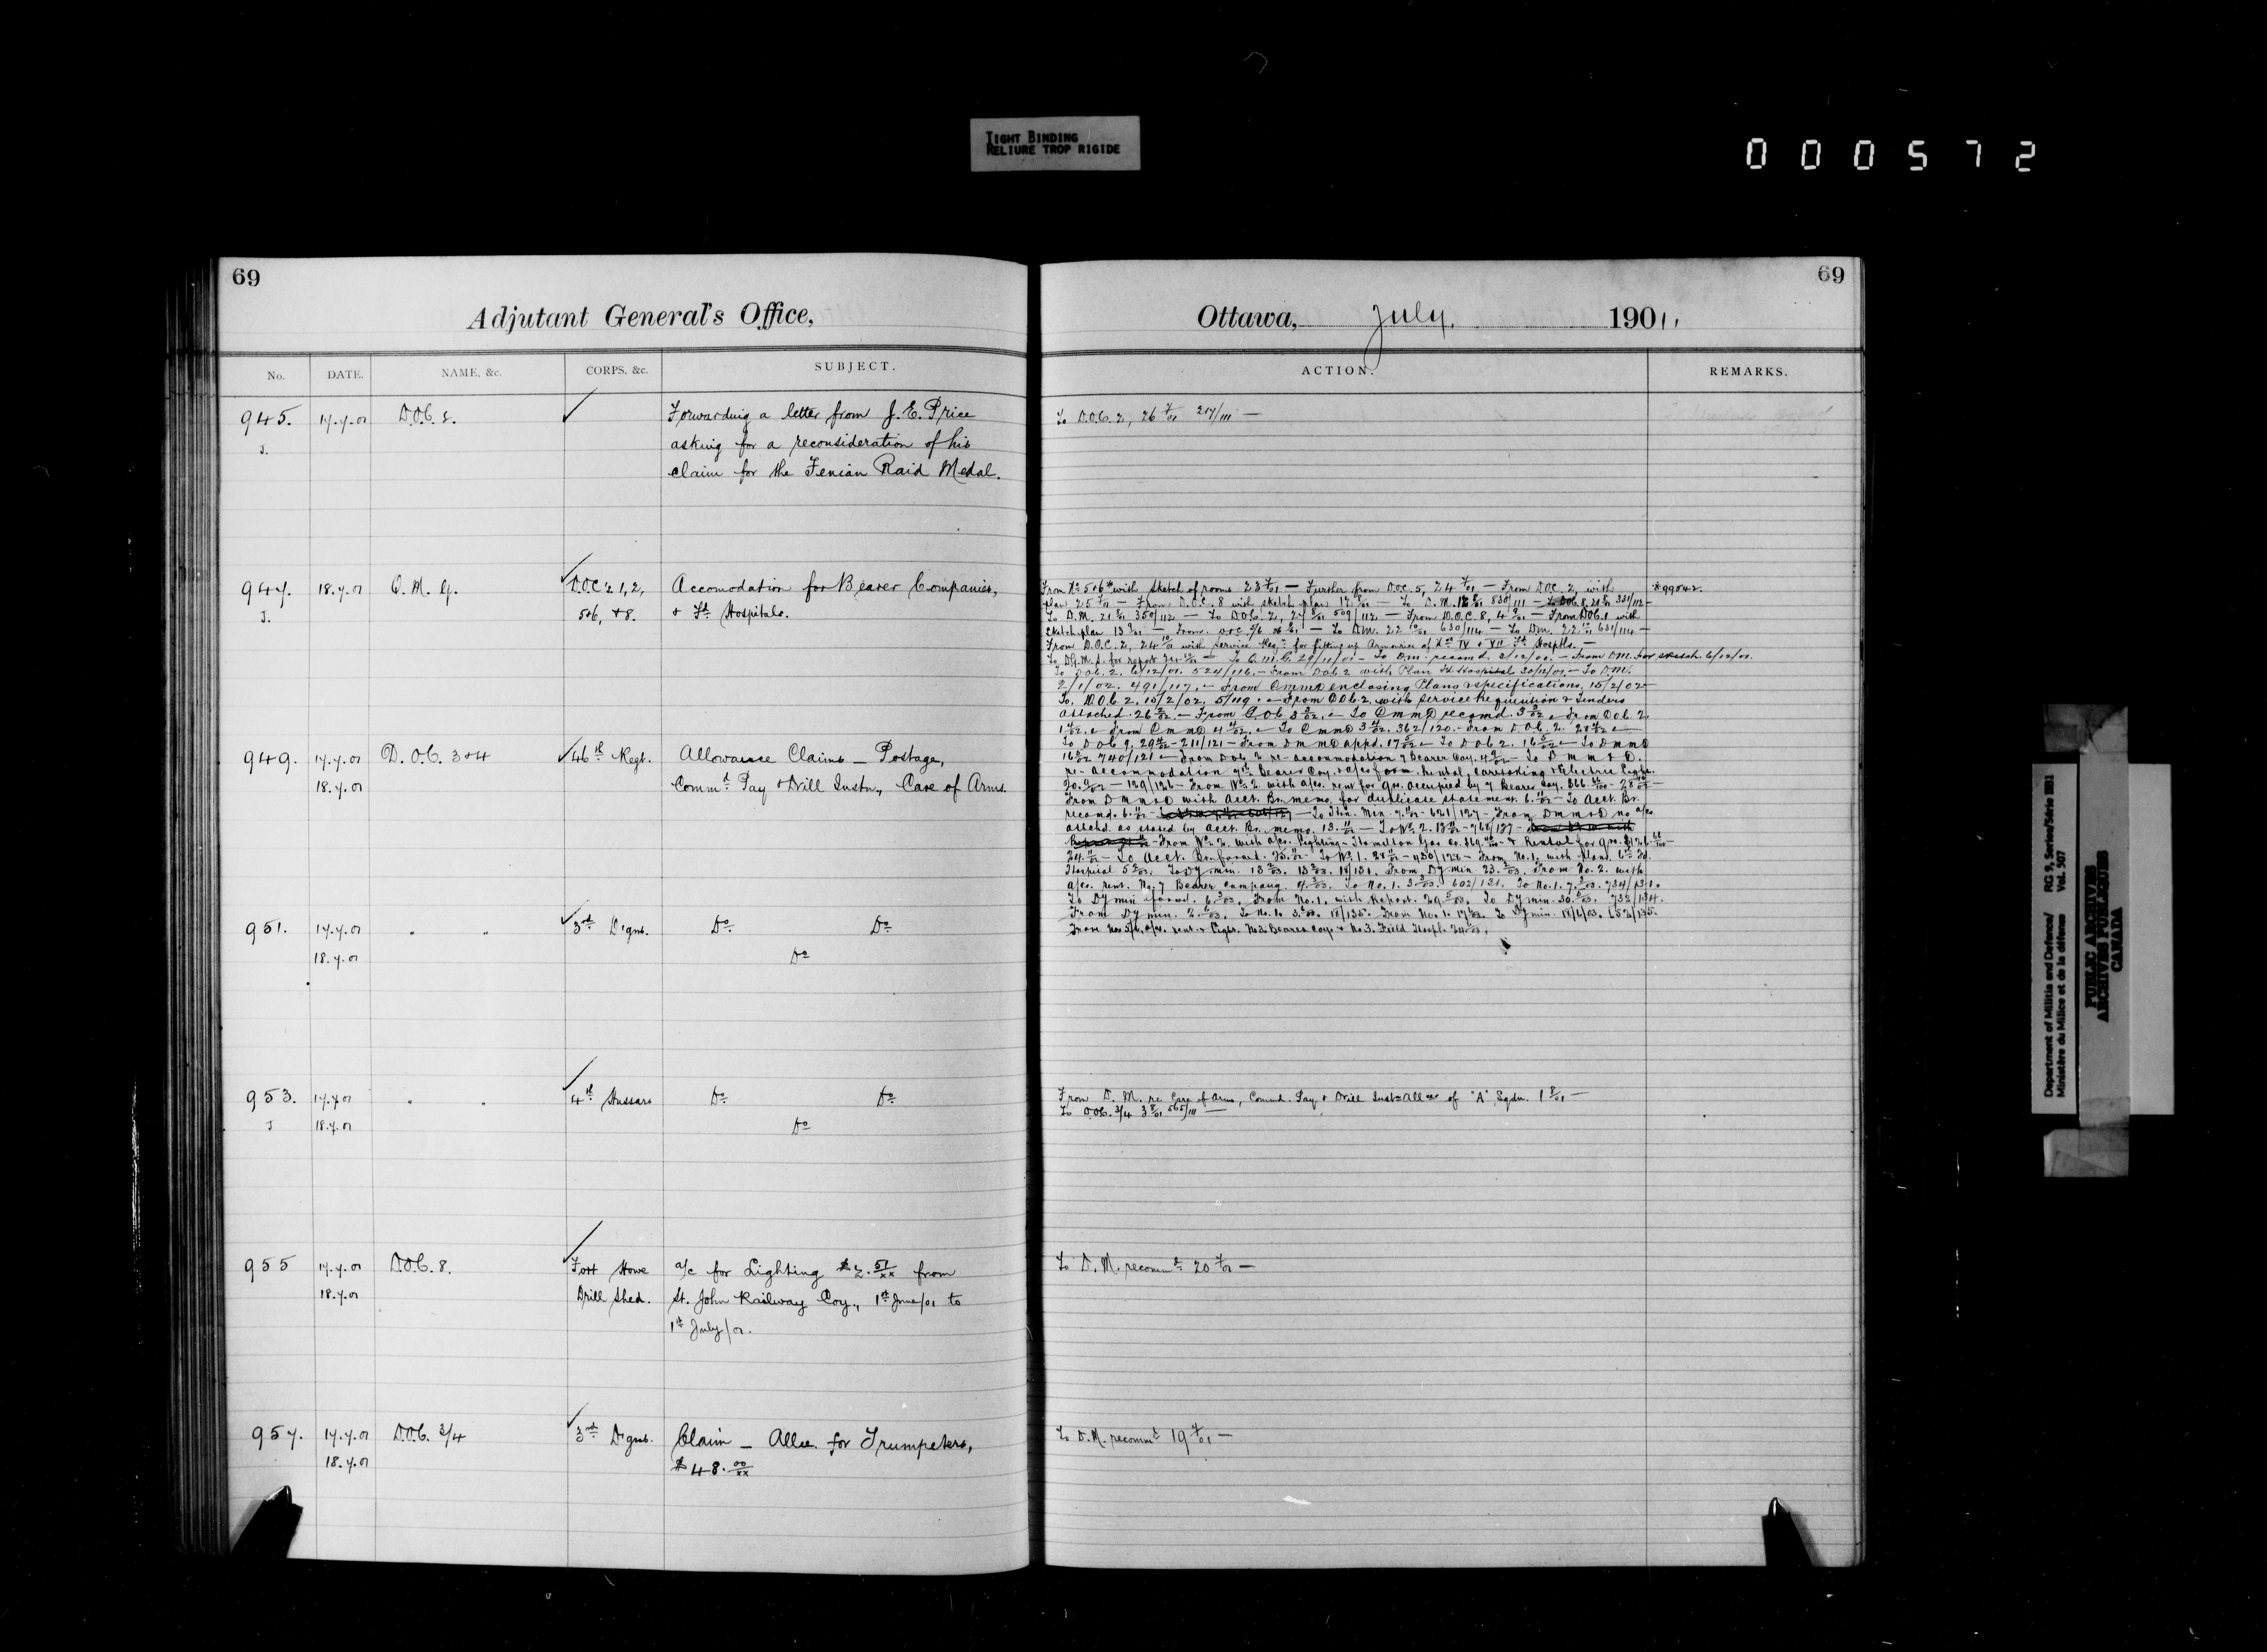 TIGHT BINDING
RELIURE TROP RIGIDE
000572
69
69
Adjutant General's Office,
Ottawa, July, 1901
No. DATE. NAME, &c. CORPS, &c. SUBJECT. ACTION. REMARKS.
945. 17.7.01 D.O.C. 2. ✓ Forwarding a letter from J. E. Price To D.O.C. 2, 26 7/01 217/111 —
J. asking for a reconsideration of his
claim for the Fenian Raid Medal.
947. 18.7.01 Q. M. G. ✓ D.O.C's 1, 2, Accomodation for Bearer Companies,
J. 5&6, & 8. & Fd Hospitals.
From No 5&6* with Sketch of rooms 23 7/01 — Further from D.O.C. 5, 24 7/01 — From D.O.C. 2, with *99542.
plan 25 7/01 — From D.O.C. 8 with sketch plan — To D.M. 830/111 — 331/112 —
To D.M. 21 8/01 350/112 — To D.O.C. 2, 27 8/01 509/112 — From D.O.C. 8, 4 9/01 — From D.O.C. 1 with
Sketch plan 13 9/01 — From D.O.C. 5/6 — To D.M. 22 10/01 630/114 — To D.M. 22 10/01 631/114 —
From D.O.C. 2, 24 10/01 with Service Reqn for fitting up Armouries of IV & VII Fd Hosptls. —
To D.G.M.S. for report — To Q.M.G. 29/11/01 — To D.M. recomd. 3/12/01. — From D.M. for sketch. 6/12/01.
To D.O.C. 2. 6/12/01. 524/116. — From D.O.C. 2 with Plan Fd. Hospital 30/12/01 — To D.M.
2/1/02. 491/117. — From enclosing Plans & specifications, 15/2/02 —
To D.O.C. 2, 15/2/02. 5/119. — From D.O.C. 2 with Service Requisition & Tenders
attached. 26 2/02. — From D.O.C. 3 3/02. — To recomd. 3 3/02 — From D.O.C. 2.
1 4/02. — From 4 4/02. — To 3 4/02. 362/120. — From D.O.C. 2. 28 4/02 —
To D.O.C. 2. 29 4/02 — 211/121 — From appd. 17 5/02 — To D.O.C. 2. 16 5/02 — To
16 5/02 740/121 — From D.O.C. 2 re-accommodation 7 Bearer Coy. 4 9/02 — To D M M & D.
re-accommodation 7th Bearer Coy. & a/cs for Rental, caretaking & Electric Light.
20. 9/02 — 129/126 — From No 2. with a/cs. rent for qrs. occupied by 7 Bearer Coy.
From D M M & D with Acct. Br. memo. for duplicate statement. 6. 11/02 — To Acct. Br.
recomd. 6. 11/02 — To Hon. Min. 7. 11/02 — 621/127 — From D M M & D no a/cs
attchd. as stated by Acct. Br. memo. 13. 11/02 — To No 2. 13 11/02 — 768/127 —
— From No 2. with a/cs. Lighting — Hamilton Gas Co. & Rental for qrs.
24. 11/02 — To Acct. Br. forwd. 25. 11/02 — To No 1. — 430/128 — From No. 1. with plans 6th Fd.
Hospital 5 2/03. To Dy. min. 13 2/03. 18/131. From Dy min. 23. 2/03. From No. 2. with
a/cs. rent. No. 7 Bearer Company. 4. 3/03. To No. 1. 3 3/03. 602/131. To No. 1. 7. 3/03. 734/131.
To Dy min forwd. 6. 3/03. From No. 1. with Report. 29 5/03. To Dy min. 30. 5/03. 732/134.
From Dy min. 2. 6/03. To No. 1. 3. 6/03. 18/135. From No. 1. 17 6/03. To Dy min. 18/6/03. 652/135.
From Nos 5/6, a/cs. rent & Light. No 3. Bearer Coy. & No 3. Field Hospl.
949. 17.7.01 D.O.C. 3&4 ✓ 46th Regt. Allowance Claims — Postage,
18.7.01 Commd Pay & Drill Instn., Care of Arms.
951. 17.7.01 " " ✓ 3rd D'gns. Do Do
18.7.01 Do
953. 17.7.01 " " ✓ 4th Hussars Do Do From D. M. re Care of Arms, Comnd. Pay & Drill Instn Allce of "A" Sqdn. 1 8/01 —
J 18.7.01 Do To D.O.C. 3/4 3 8/01 565/111 —
955 17.7.01 D.O.C. 8. ✓ Fort Howe a/c for Lighting $2.51/xx from To D. M. recommd 20 7/01 —
18.7.01 Drill Shed. St. John Railway Coy., 1st June/01 to
1st July/01.
957. 17.7.01 D.O.C. 3/4 ✓ 3rd D'gns. Claim — Allce. for Trumpeters, To D.M. recommd 19 7/01 —
18.7.01 $48.00/xx
Department of Militia and Defence/ RG 9, Series/Série IIB1
Ministère du Milice et de la défense Vol. 507
PUBLIC ARCHIVES
ARCHIVES PUBLIQUES
CANADA